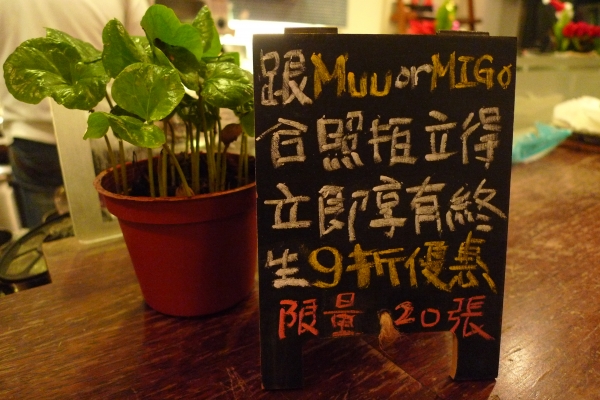 跟MuuorMIGo
合照拍立得
立即享有終
生9折優惠
限量 20張